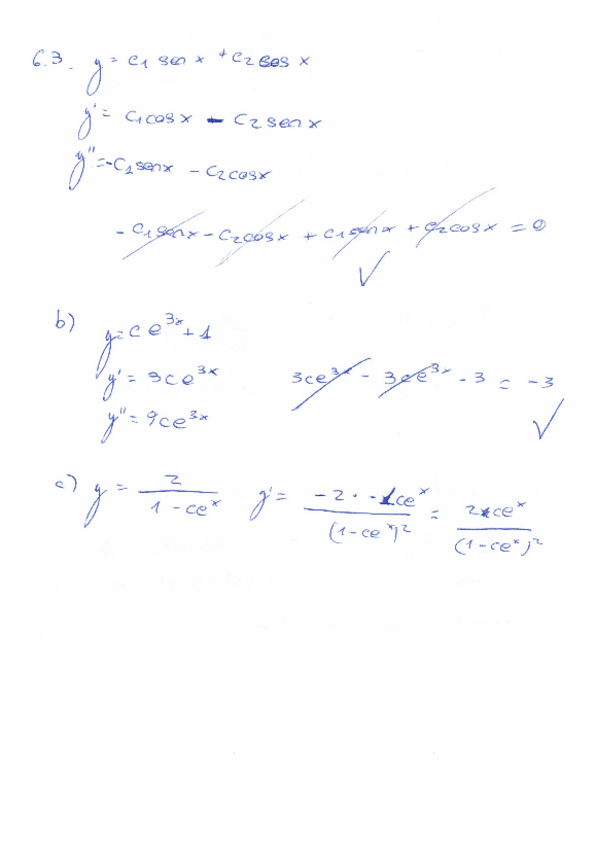 6.3. y = c1 sen x + c2 cos x
y' = c1 cos x - c2 sen x
y'' = -c1 sen x - c2 cos x
- c1 sen x - c2 cos x + c1 sen x + c2 cos x = 0
✓
b) y = c e^3x + 1
y' = 3 c e^3x 3 c e^3x - 3 c e^3x - 3 = -3
y'' = 9 c e^3x ✓
c) y = 2 / (1 - ce^x) y' = (-2 · -1ce^x) / (1 - ce^x)^2 = 2ce^x / (1 - ce^x)^2